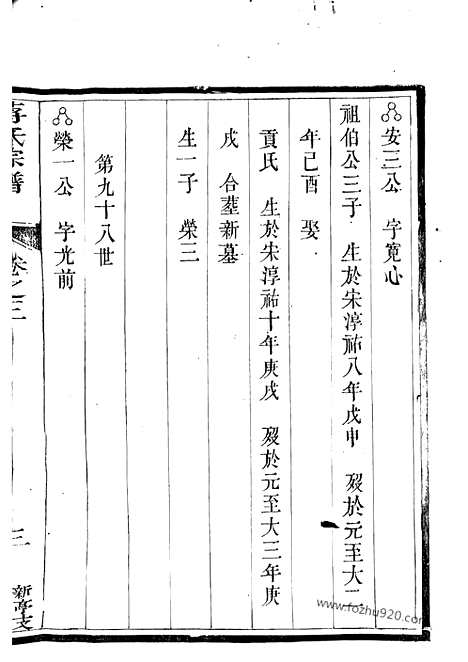 安三公 字寬心
祖伯公三子 生於宋淳祐八年戊申 歿於元至大二
年己酉 娶
貢氏 生於宋淳祐十年庚戌 歿於元至大三年庚
戌 合塟新墓
生一子 榮三
第九十八世
榮一公 字光前
氏宗譜 卷之三 三 新亭支
www.fozhu920.com